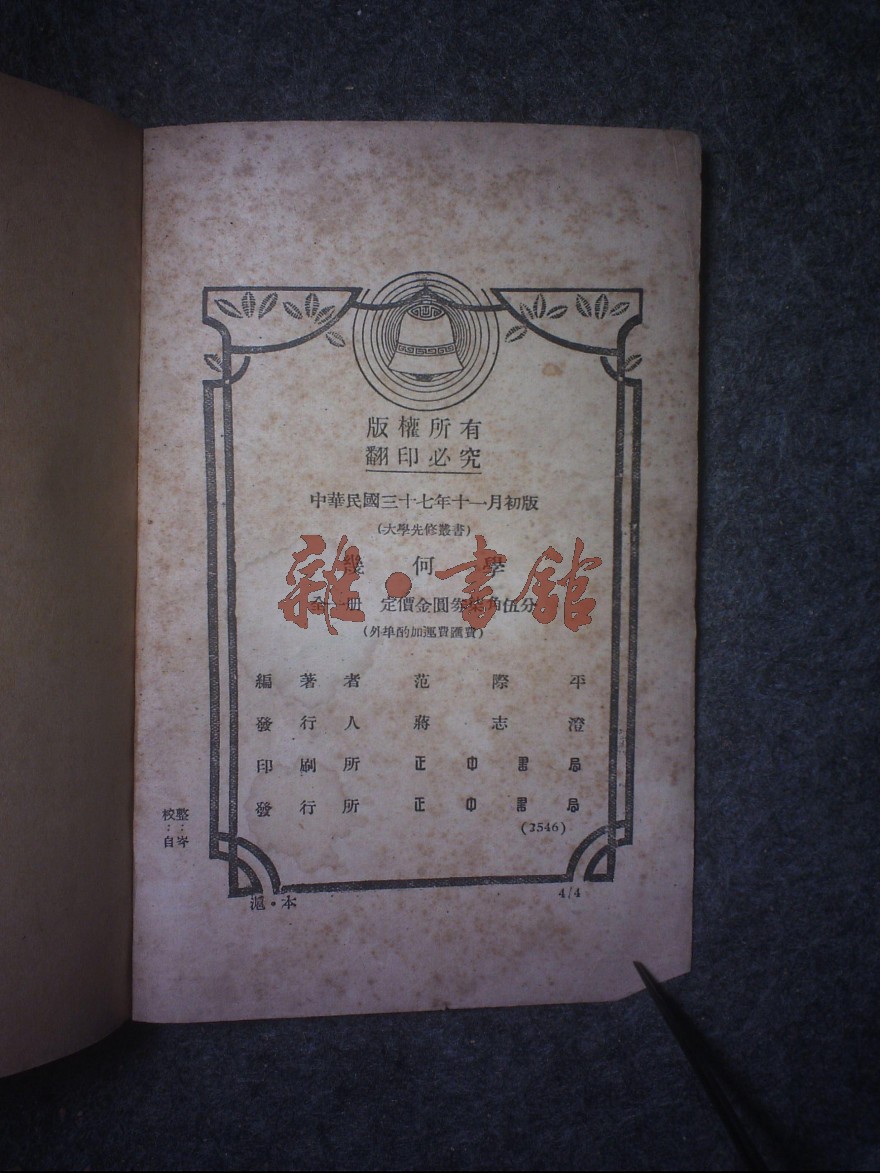 版權所有
翻印必究
中華民國三十七年十一月初版
(大學先修叢書)
幾何學
全一册 定價金圓券柒角伍分
(外埠酌加運費匯費)
編著者 范際平
發行人 蔣志澄
印刷所 正中書局
發行所 正中書局
(2546)
校整
：：
自岑
滬·本
4/4
雜·書館